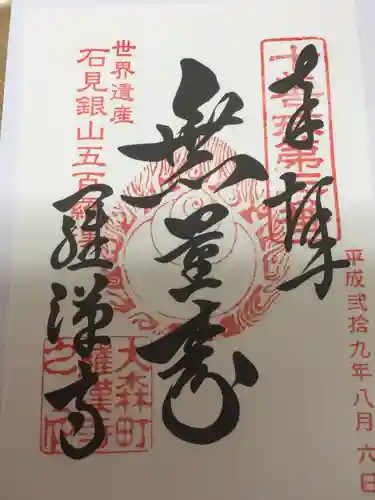 奉拝
平成弐拾九年八月六日
無量寿
世界遺産
石見銀山五百羅漢
羅漢寺
大森町
羅漢寺
之印